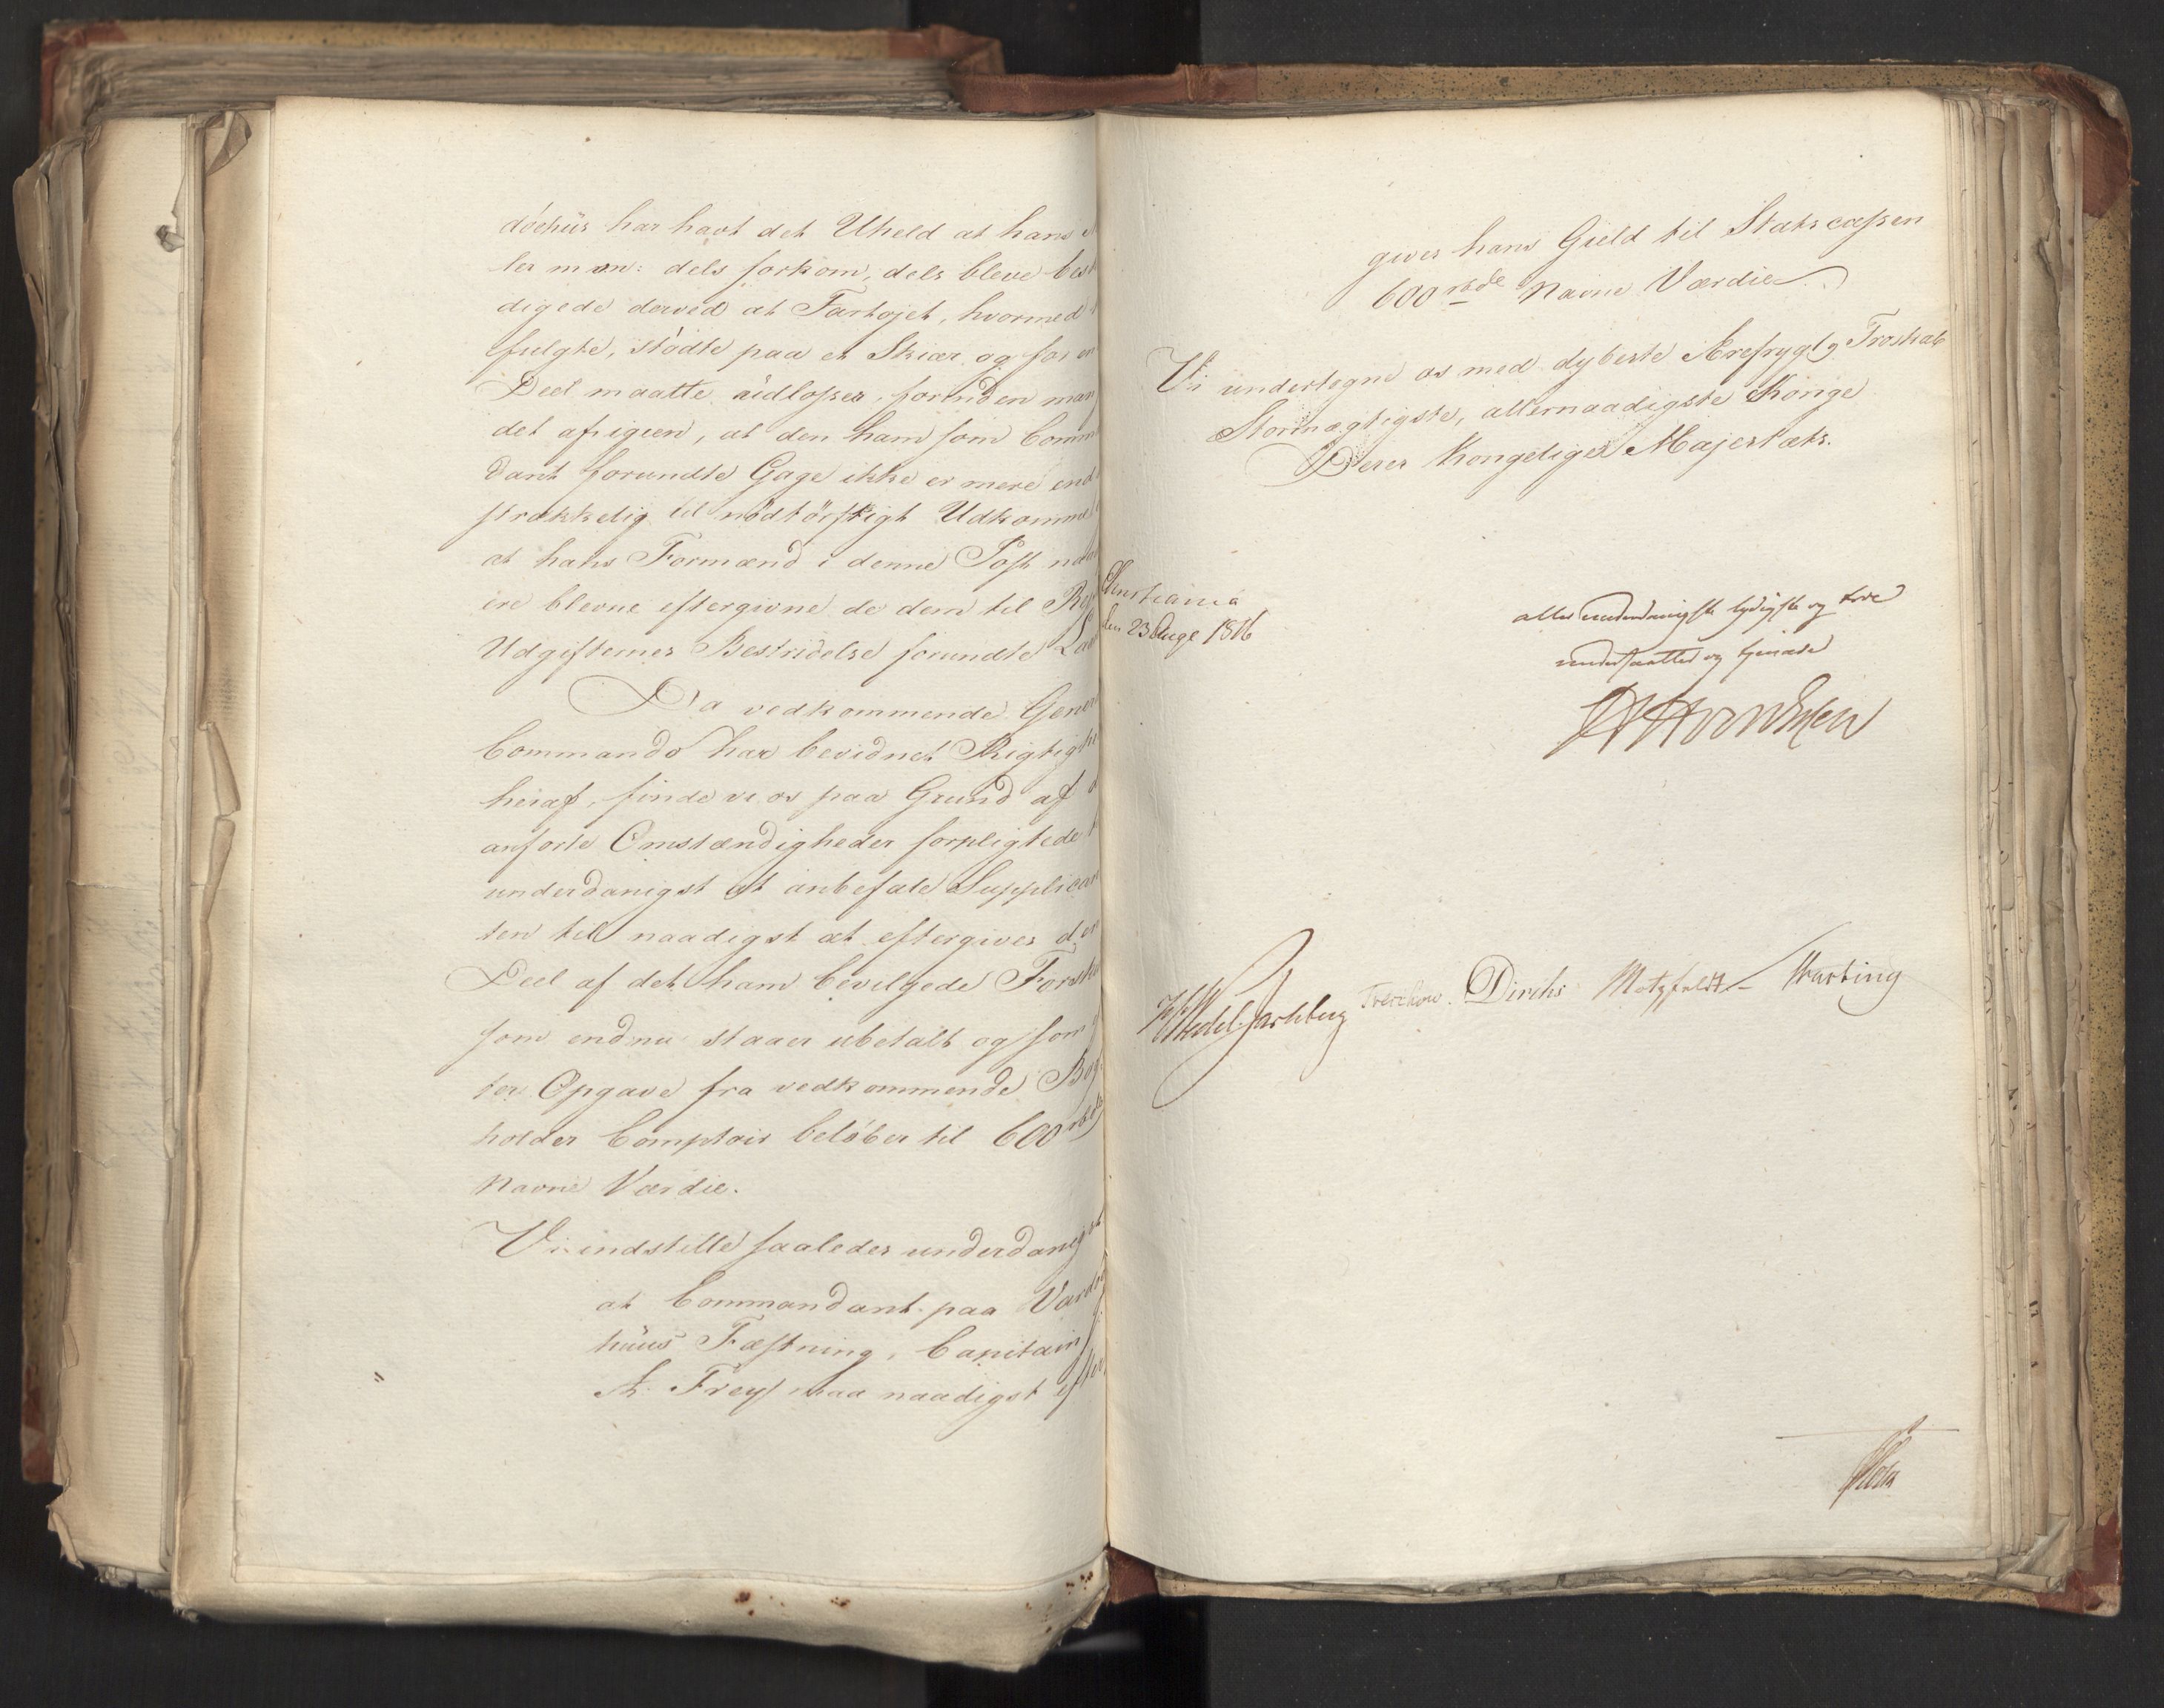 döehuus har havt det Uheld at hans
ler m m: dels forkom, dels bleve besk
digede derved at Fartøjet, hvormed
fulgte, stödte paa et Skiær og for en
Deel maatte udlosses, foruden man
det afsigeen, at den ham som Comm
dant forundte Gage ikke er mere end
strækkelig til nödtörftigt Udkomme
at hans Formænd i denne Post
ere blevne eftergivne de dem til
Udgifternes Bestridelse forundte
Da vedkommende Gener
Commando har bevidnet Rigtigh
heraf, finde vi os paa Grund af
anforte Omstændigheder forpligtede
underdanigst at anbefale Supplican
ten til naadigst at eftergives den
Deel af det ham bevilgede Forsk
som endnu staaer ubetalt og som
ter Opgave fra vedkommende Bog
holder Comptoir beløber til 600 rbd
Navne Værdie.
Vi indstille saaledes underdanigst
at Commandant paa Vardö
huus Fæstning, Capitain
Fr. Frey maa naadigst efter
gives hans Gield til Statscassen
600 rbd Navne Værdie
Vi undertegne os med dybeste Ærefrygt og Troskab
Stormægtigste, allernaadigste Konge
Deres Kongelige Majestæts.
Christiania
den 23 Aug 1816
allerunderdanigste lydigste og troe
undersaatter og tjenere
Wedel Jarlsberg Treschow Dircks Motzfeldt Krafting